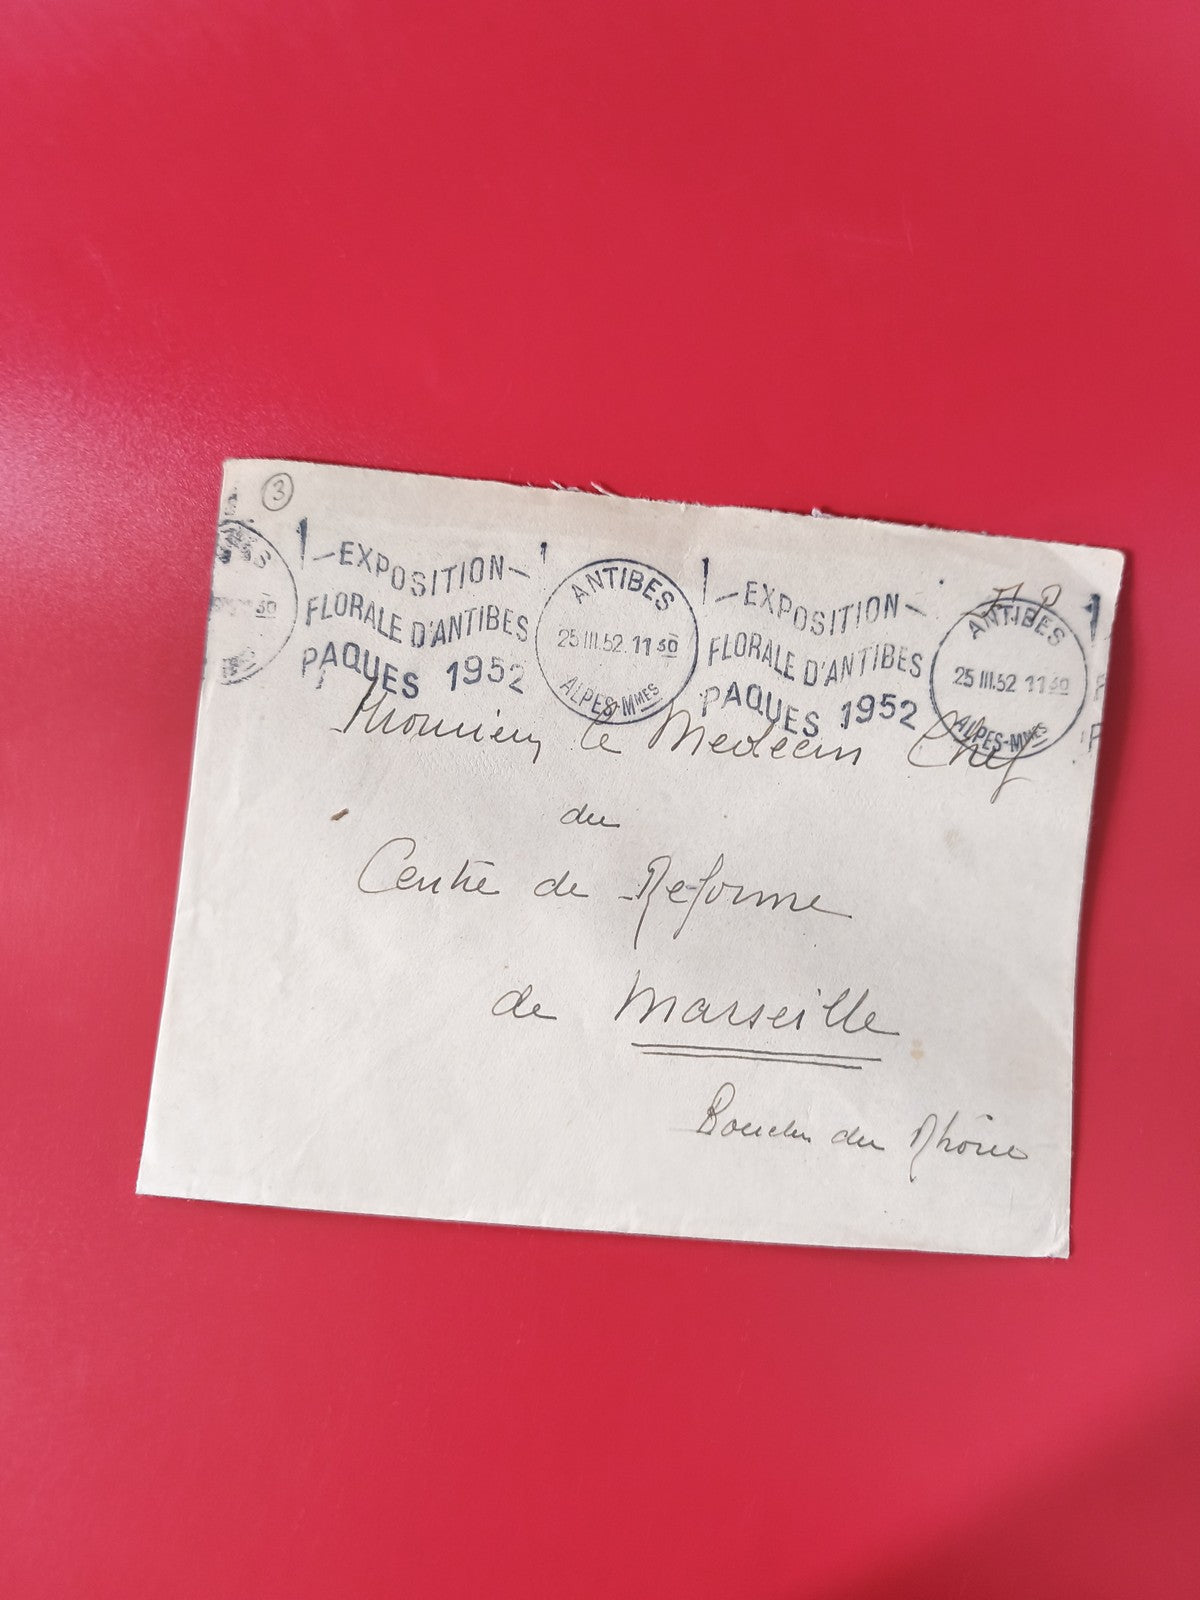 3
EXPOSITION
FLORALE D'ANTIBES
PAQUES 1952
ANTIBES
25 III.52. 11 30
ALPES-MMES
EXPOSITION
FLORALE D'ANTIBES
PAQUES 1952
ANTIBES
25 III.52 11 30
ALPES-MMES
Monsieur le Medecin Chef
du
Centre de Réforme
de Marseille
Bouches du Rhône